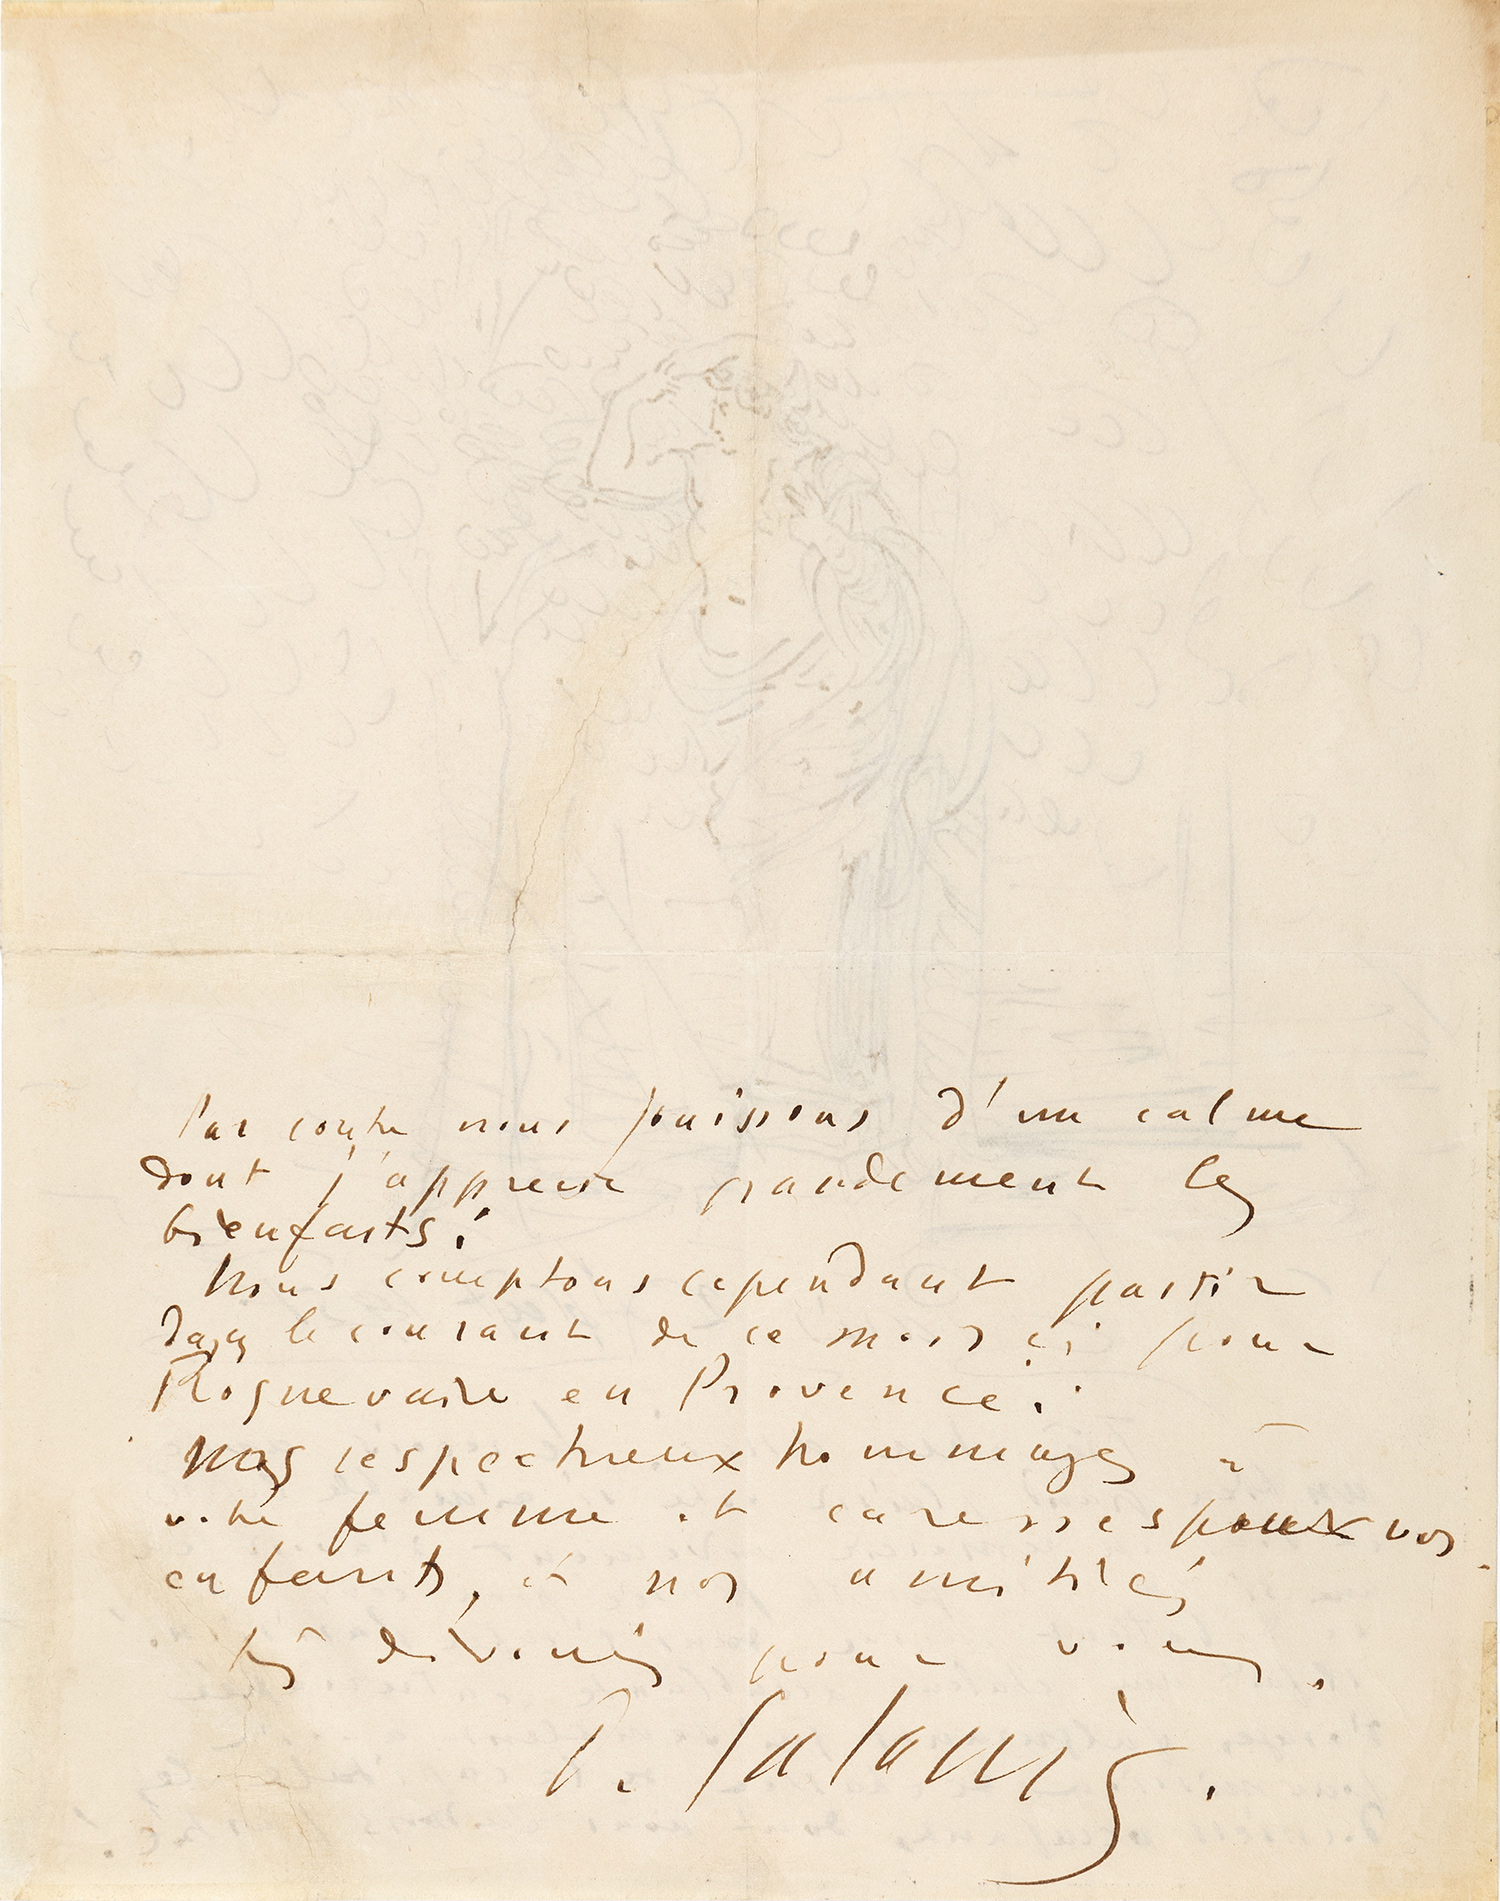 Par contre nous jouissons d'un calme
dont j'apprecie grandement les
bienfaits.
Nous comptons cependant partir
dans le courant de ce mois ci pour
Roquevaire en Provence.
Nos respectueux hommages à
votre femme et caresses pour vos
enfants, et nos amitiés
très dévouées pour vous.
P.